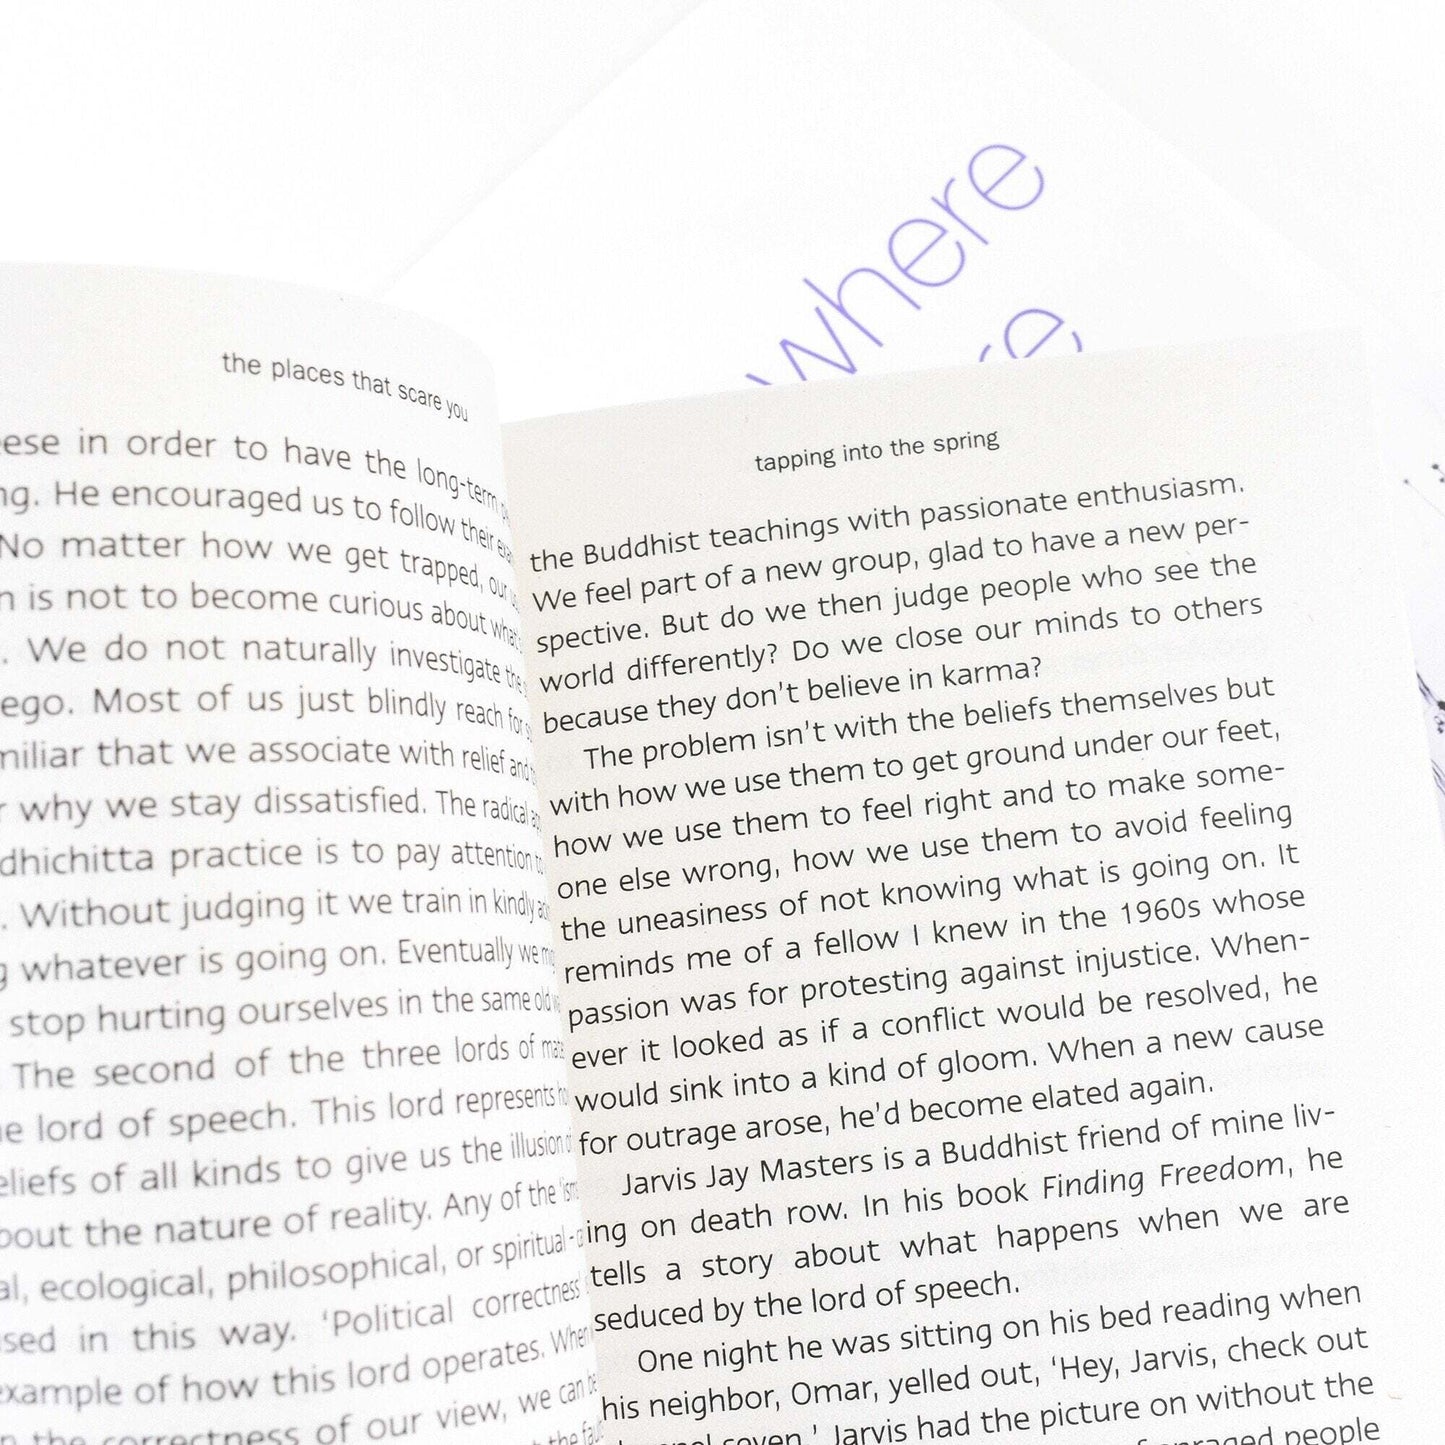 where
the places that scare you
in order to have the long-term
He encouraged us to follow their
No matter how we get trapped, our
is not to become curious about what
We do not naturally investigate the
ego. Most of us just blindly reach for
that we associate with relief and
why we stay dissatisfied. The radical
practice is to pay attention
Without judging it we train in kindly
whatever is going on. Eventually we
stop hurting ourselves in the same old
The second of the three lords of
lord of speech. This lord represents
of all kinds to give us the illusion
the nature of reality. Any of the
ecological, philosophical, or spiritual
in this way. ‘Political correctness
of how this lord operates. When
correctness of our view, we can be
the
tapping into the spring
the Buddhist teachings with passionate enthusiasm.
We feel part of a new group, glad to have a new per-
spective. But do we then judge people who see the
world differently? Do we close our minds to others
because they don’t believe in karma?
The problem isn’t with the beliefs themselves but
with how we use them to get ground under our feet,
how we use them to feel right and to make some-
one else wrong, how we use them to avoid feeling
the uneasiness of not knowing what is going on. It
reminds me of a fellow I knew in the 1960s whose
passion was for protesting against injustice. When-
ever it looked as if a conflict would be resolved, he
would sink into a kind of gloom. When a new cause
for outrage arose, he’d become elated again.
Jarvis Jay Masters is a Buddhist friend of mine liv-
ing on death row. In his book Finding Freedom, he
tells a story about what happens when we are
seduced by the lord of speech.
One night he was sitting on his bed reading when
his neighbor, Omar, yelled out, ‘Hey, Jarvis, check out
seven.’ Jarvis had the picture on without the
people